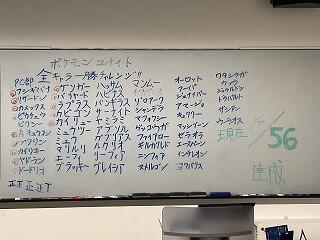 ポケモンユナイト
PC部 全キャラ一勝チャレンジ!!
フシギバナ
リザードン
カメックス
ピカチュウ
ピクシー
Aキュウコン
プクリン
カイリキー
ヤドラン
ドードリオ
正正正下
ゲンガー
バリヤード
ラプラス
カビゴン
カイリュー
ミュウツー
ミュウ
マリルリ
エーフィ
ブラッキー
ハッサム
ハピナス
バンギラス
サーナイト
ヤミラミ
アブソル
ガブリアス
ルカリオ
リーフィア
グレイシア
マンムー
ゾロアーク
シャンデラ
マフォクシー
ゲッコウガ
ファイアロー
ギルガルド
ニンフィア
ヌメルゴン
オーロット
フーパ
ジュナイパー
アマージョ
キュワワー
マッシブーン
ゼラオラ
エースバーン
インテレオン
ヨクバリス
ワタシラガ
ウッウ
ジュラルドン
ドラパルト
ザシアン
ウーラオス
現在
56
達成